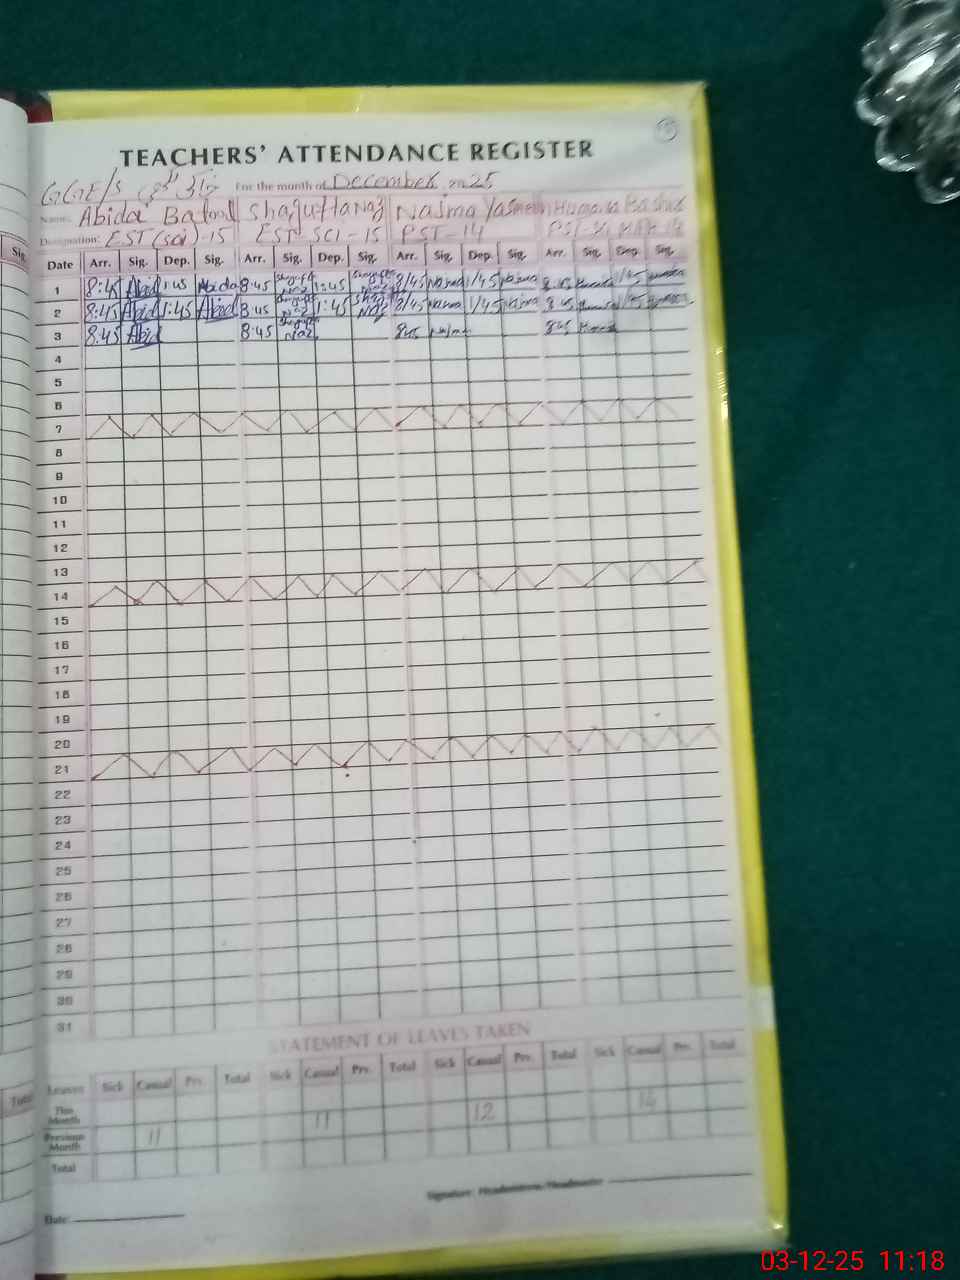 TEACHERS' ATTENDANCE REGISTER
GGE/S For the month of December 2025
Name: Abida Batool Shagufta Naz Najma Yasmeen Humaira
Designation: EST (sci)-15 EST-SCI-15 PST-14
Date Arr. Sig. Dep. Sig. Arr. Sig. Dep. Sig. Arr. Sig. Dep. Sig. Arr. Sig. Dep. Sig.
1 8:45 Abid 1:45 Abida 8:45 Shagufta Naz 1:45 Shagufta Naz 8/45 Najma 1/45 Najma 8:45 Humaira 1/45 Humaira
2 8:45 Abid 1:45 Abid 8:45 Shagufta Naz 1:45 Shagufta Naz 8/45 Najma 1/45 Najma 8:45 Humaira 1/45 Humaira
3 8:45 Abid 8:45 Shagufta Naz 8:45 Najma 8:45 Humaira
4
5
6
7
8
9
10
11
12
13
14
15
16
17
18
19
20
21
22
23
24
25
26
27
28
29
30
31
STATEMENT OF LEAVES TAKEN
Leaves Sick Casual Prv. Total Sick Casual Prv. Total Sick Casual Prv. Total Sick Casual Prv. Total
This Month 11 12
Previous Month 11
Total
Signature: Headmistress/Headmaster
Date:
Sig.
Total
03-12-25 11:18